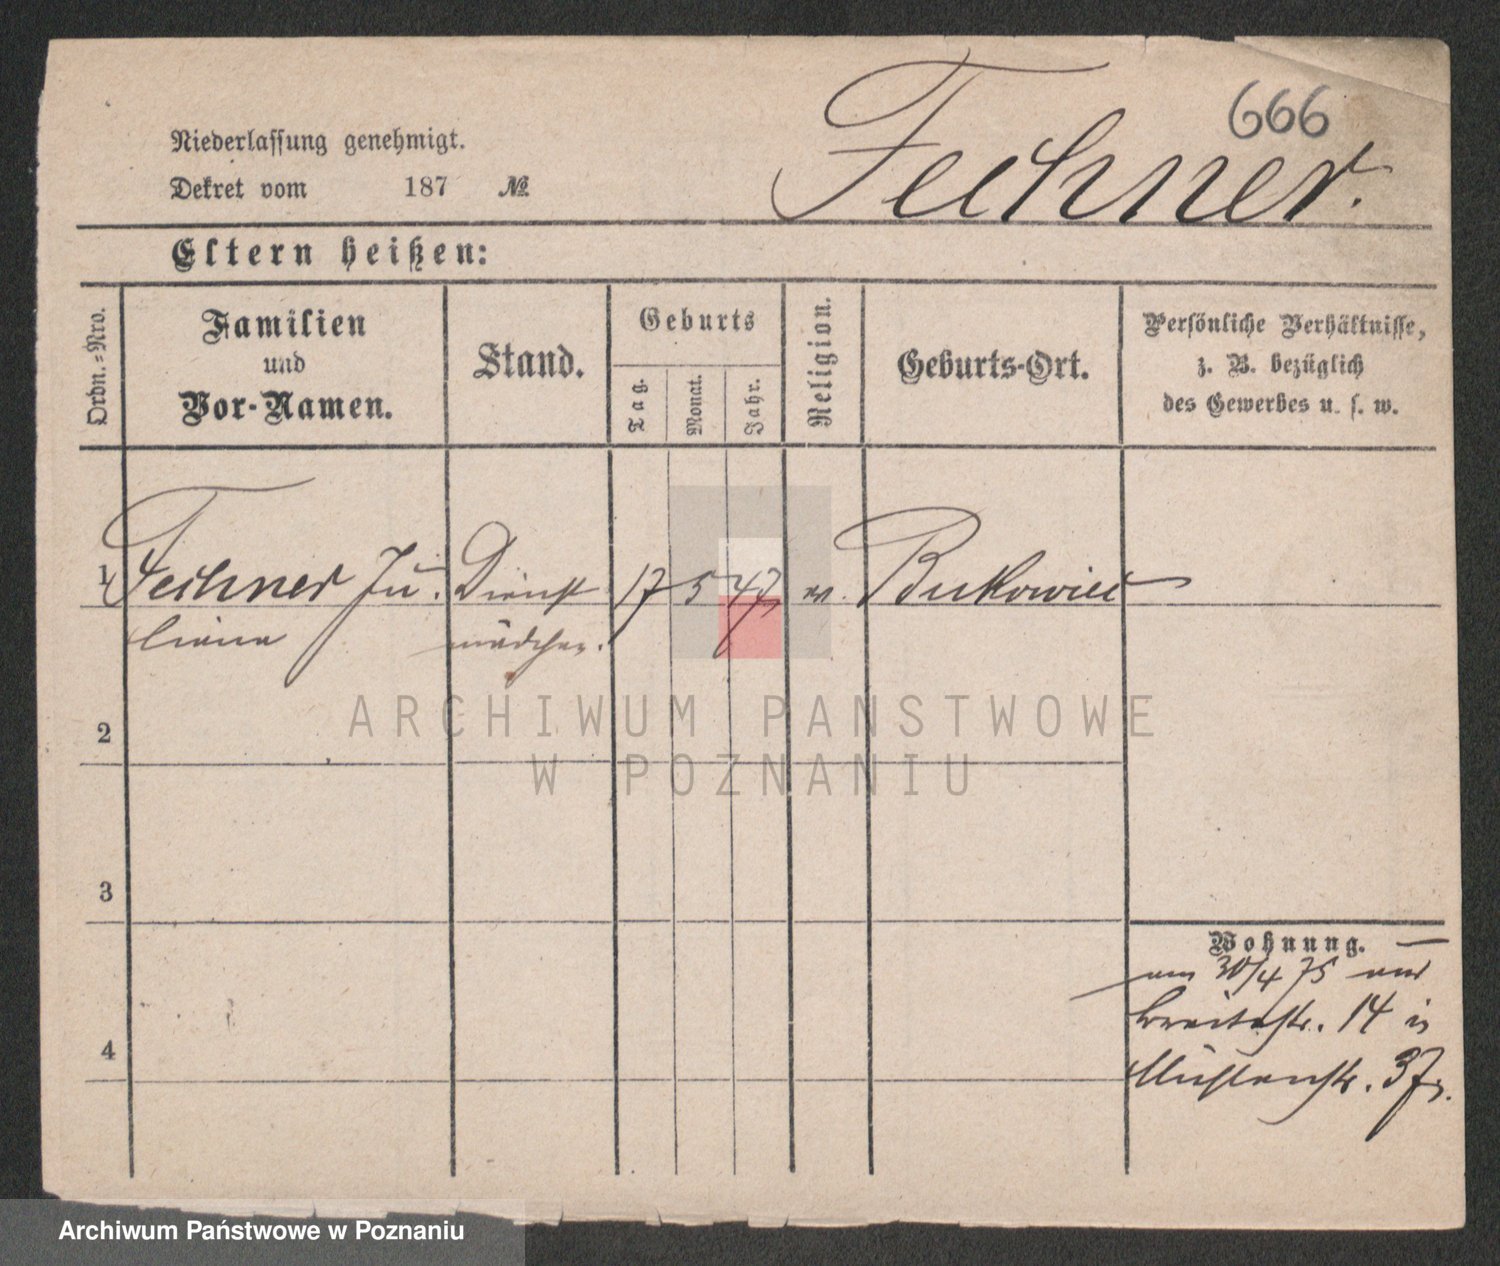 666
Fechner.
Niederlassung genehmigt.
Dekret vom 187 №
Eltern heißen:
Ordn.=Nro.
Familien
und
Vor-Namen.
Stand.
Geburts
Tag.
Monat.
Jahr.
Religion.
Geburts-Ort.
Persönliche Verhältnisse,
z. B. bezüglich
des Gewerbes u. s. w.
1 Fechner Ju Dienst 17 5 47 ev. Bukowiec
liana mädchen.
2
3
4
Wohnung.
am 30/4 75 von
Breitestr. 14 in
Mühlenstr. 37
ARCHIWUM PAŃSTWOWE
W POZNANIU
Archiwum Państwowe w Poznaniu